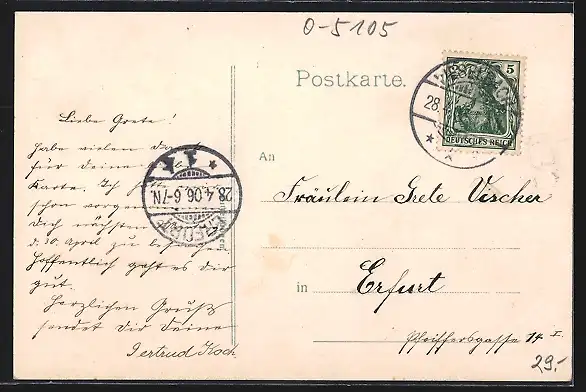 O-5105
Postkarte.
5
DEUTSCHES REICH
28.
Liebe Grete!
habe vielen Dank
für deine
Karte. Ich
schon
Dich nächsten
d. 30. April zu
Hoffentlich geht es dir
gut.
Herzlichen Gruß
sendet Dir Deine
Gertrud Koch
ERFURT
28.4.06. 6-7N.
An
Fräulein Grete Vischer
in Erfurt
Pfeiffersgasse 14 I.
29.-